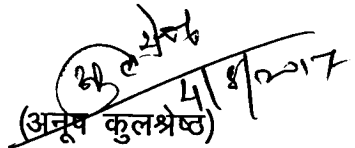 4/8/2017
(अनूप कुलश्रेष्ठ)